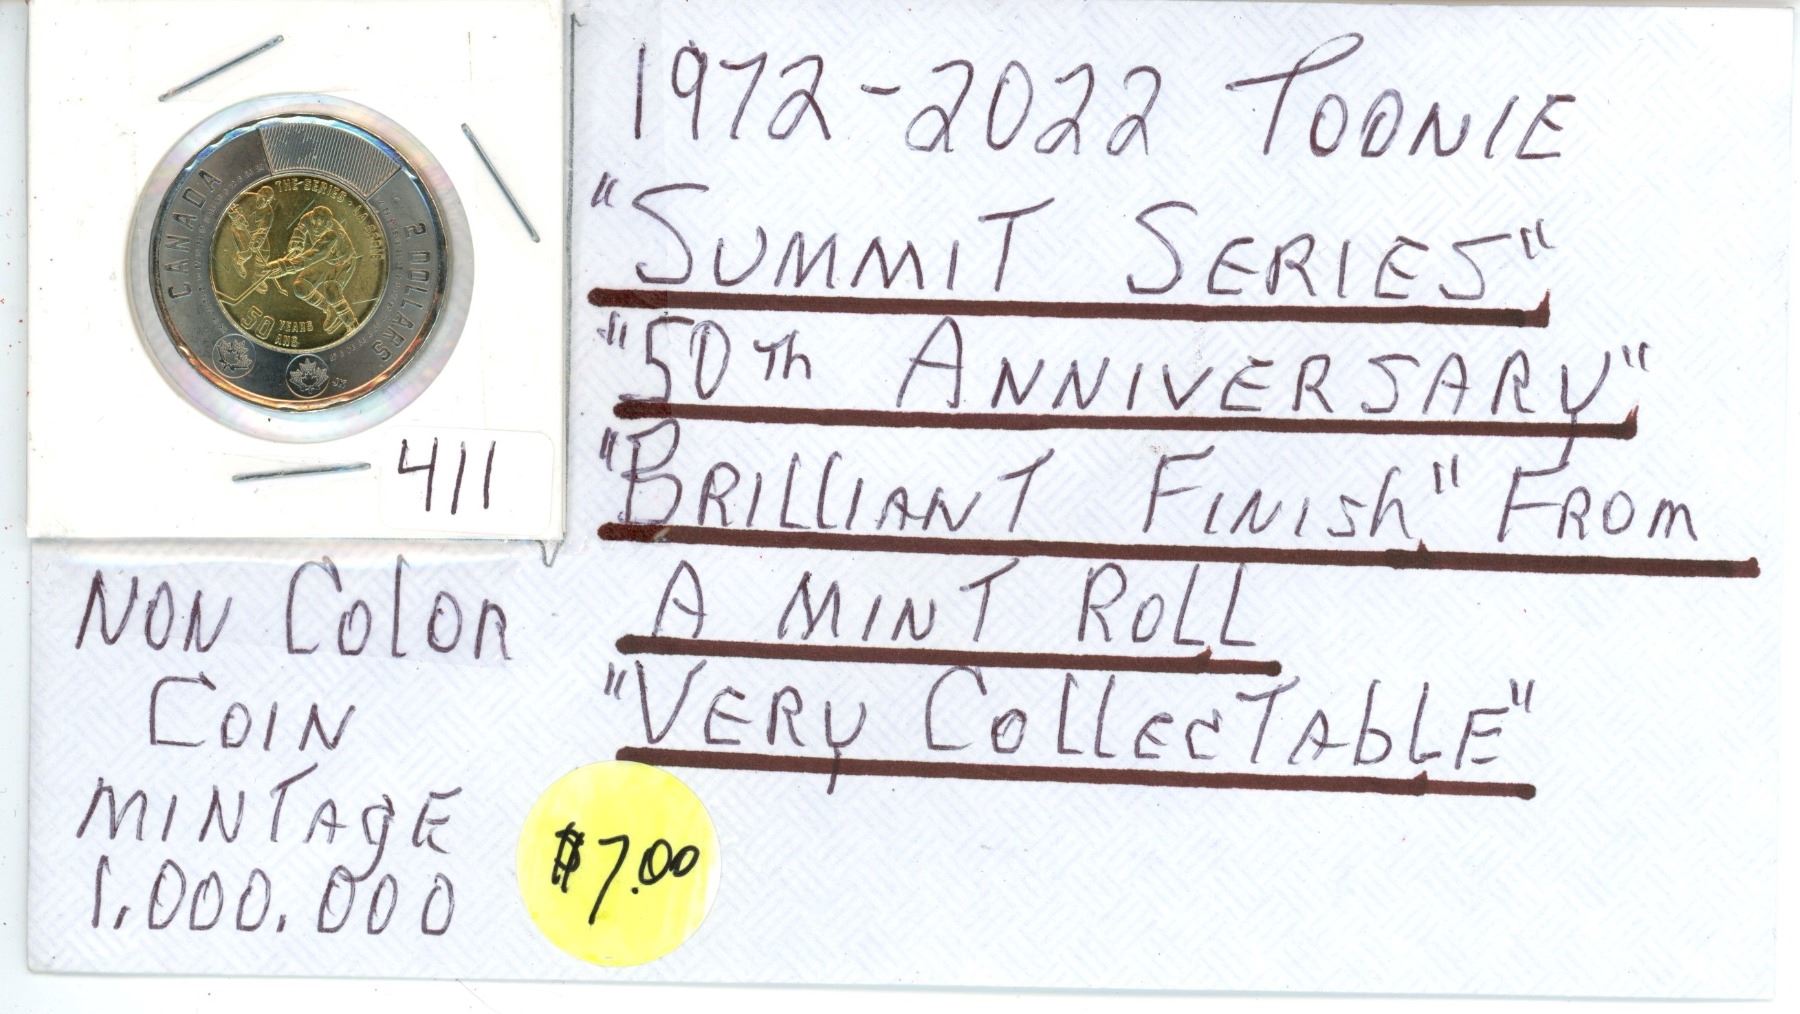 1972-2022 TOONIE
"SUMMIT SERIES"
"50Th ANNIVERSARY"
"BRILLIANT FINISh" FROM
A MINT ROLL
"VERY COllECTAbLE"
CANADA
2 DOLLARS
THE SERIES
50 YEARS
ANS
411
NON COlOR
COIN
MINTAgE
1,000,000
$7.00